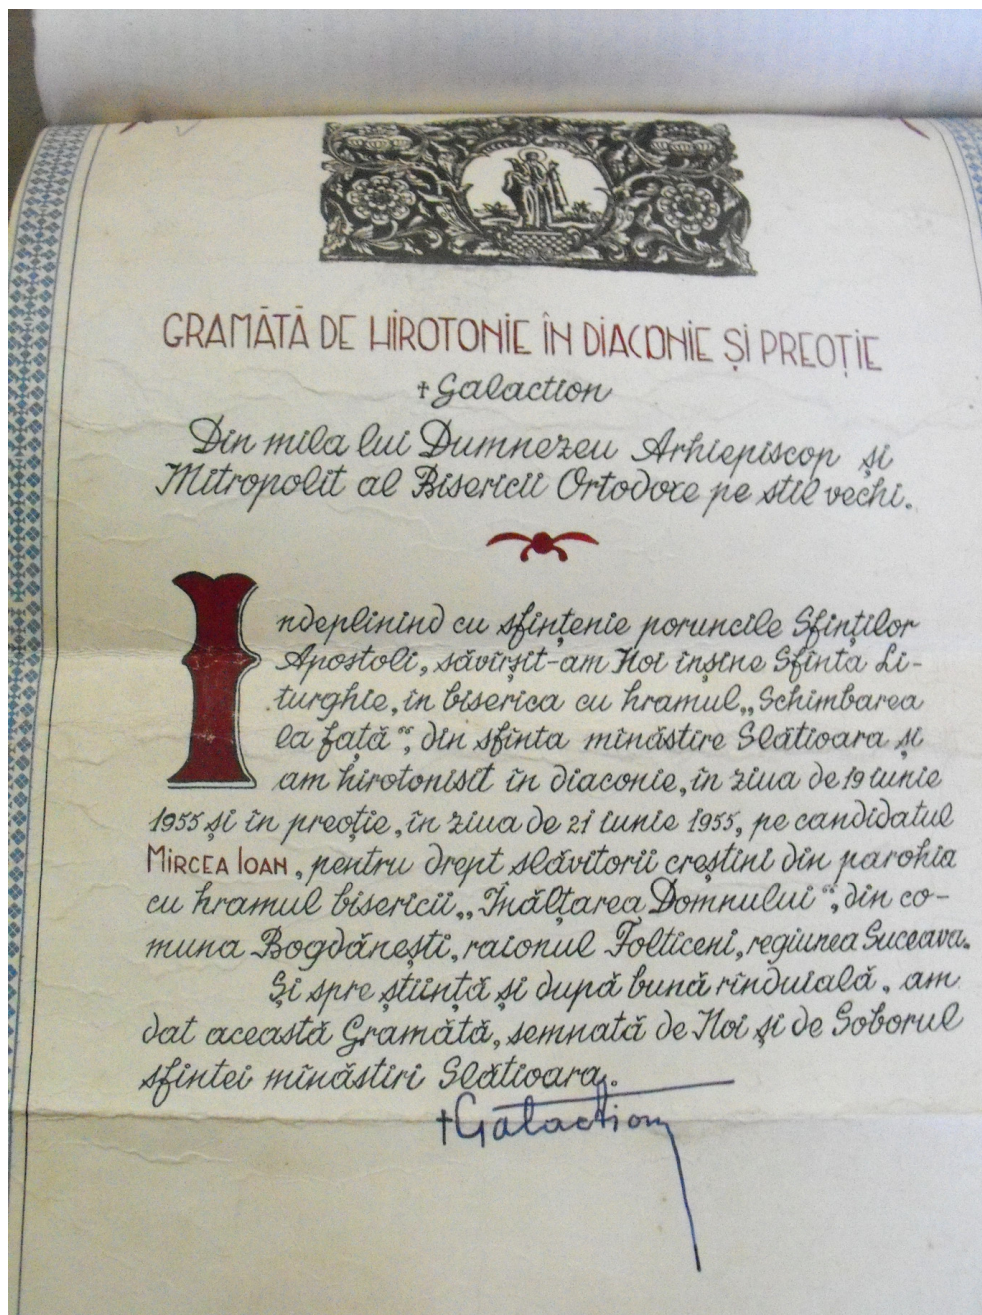 GRAMĂTĂ DE HIROTONIE ÎN DIACONIE ȘI PREOȚIE
† Galaction
Din mila lui Dumnezeu Arhiepiscop și
Mitropolit al Bisericii Ortodoxe pe stil vechi.
Indeplinind cu sfințenie poruncile Sfinților
Apostoli, săvîrșit-am Noi înșine Sfînta Li-
turghie, în biserica cu hramul „Schimbarea
la față“, din sfînta mînăstire Slătioara și
am hirotonisit în diaconie, în ziua de 19 iunie
1955 și în preoție, în ziua de 21 iunie 1955, pe candidatul
MIRCEA IOAN, pentru drept slăvitorii creștini din parohia
cu hramul bisericii „Înălțarea Domnului“, din co-
muna Bogdănești, raionul Folticeni, regiunea Suceava.
Și spre știință și după bună rînduială, am
dat această Gramătă, semnată de Noi și de Soborul
sfintei mînăstiri Slătioara.
† Galaction